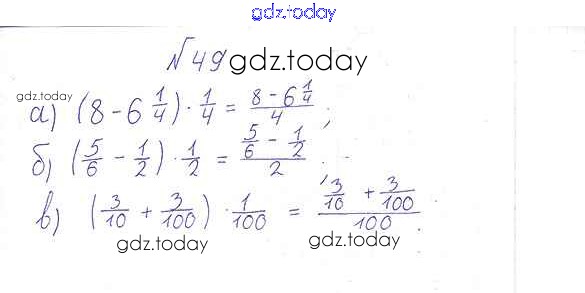 gdz.today
№49 gdz.today
gdz.today
а) (8 - 6 1/4) · 1/4 = (8 - 6 1/4)/4 ;
б) (5/6 - 1/2) · 1/2 = (5/6 - 1/2)/2 .
в) (3/10 + 3/100) · 1/100 = (3/10 + 3/100)/100 .
gdz.today gdz.today